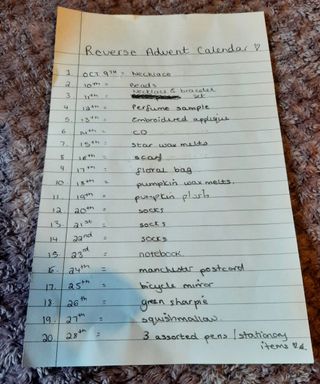 Reverse Advent Calendar ♡
1 OCT 9TH = Necklace
2 10th = Beads
3 11th = Necklace & bracelet set
4 12th = Perfume sample
5 13th = Embroidered applique
6 14th = CD
7. 15th = star wax melts
8 16th = scarf
9 17th = floral bag
10 18th = pumpkin wax melts.
11 19th = pumpkin plush
12 20th = socks
13. 21st = socks
14 22nd = socks
15. 23rd = notebook
16. 24th = manchester postcard
17. 25th = bicycle mirror
18. 26th = green sharpie
19. 27th = squishmallow
20. 28th = 3 assorted pens / stationery
items